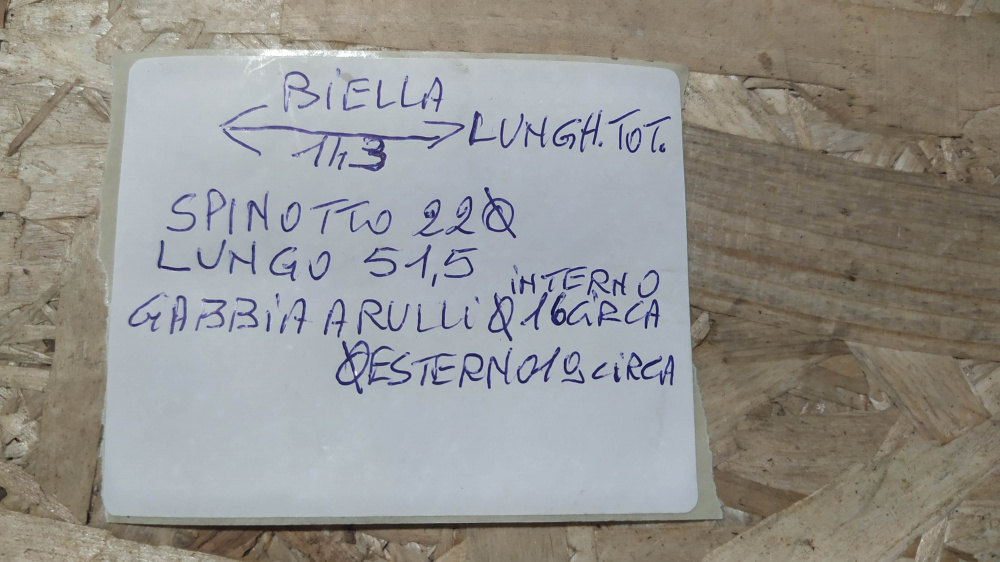 BIELLA
143 LUNGH. TOT.
SPINOTTO 22Ø
LUNGO 51,5
INTERNO
GABBIA A RULLI Ø 16 CIRCA
Ø ESTERNO 19 CIRCA